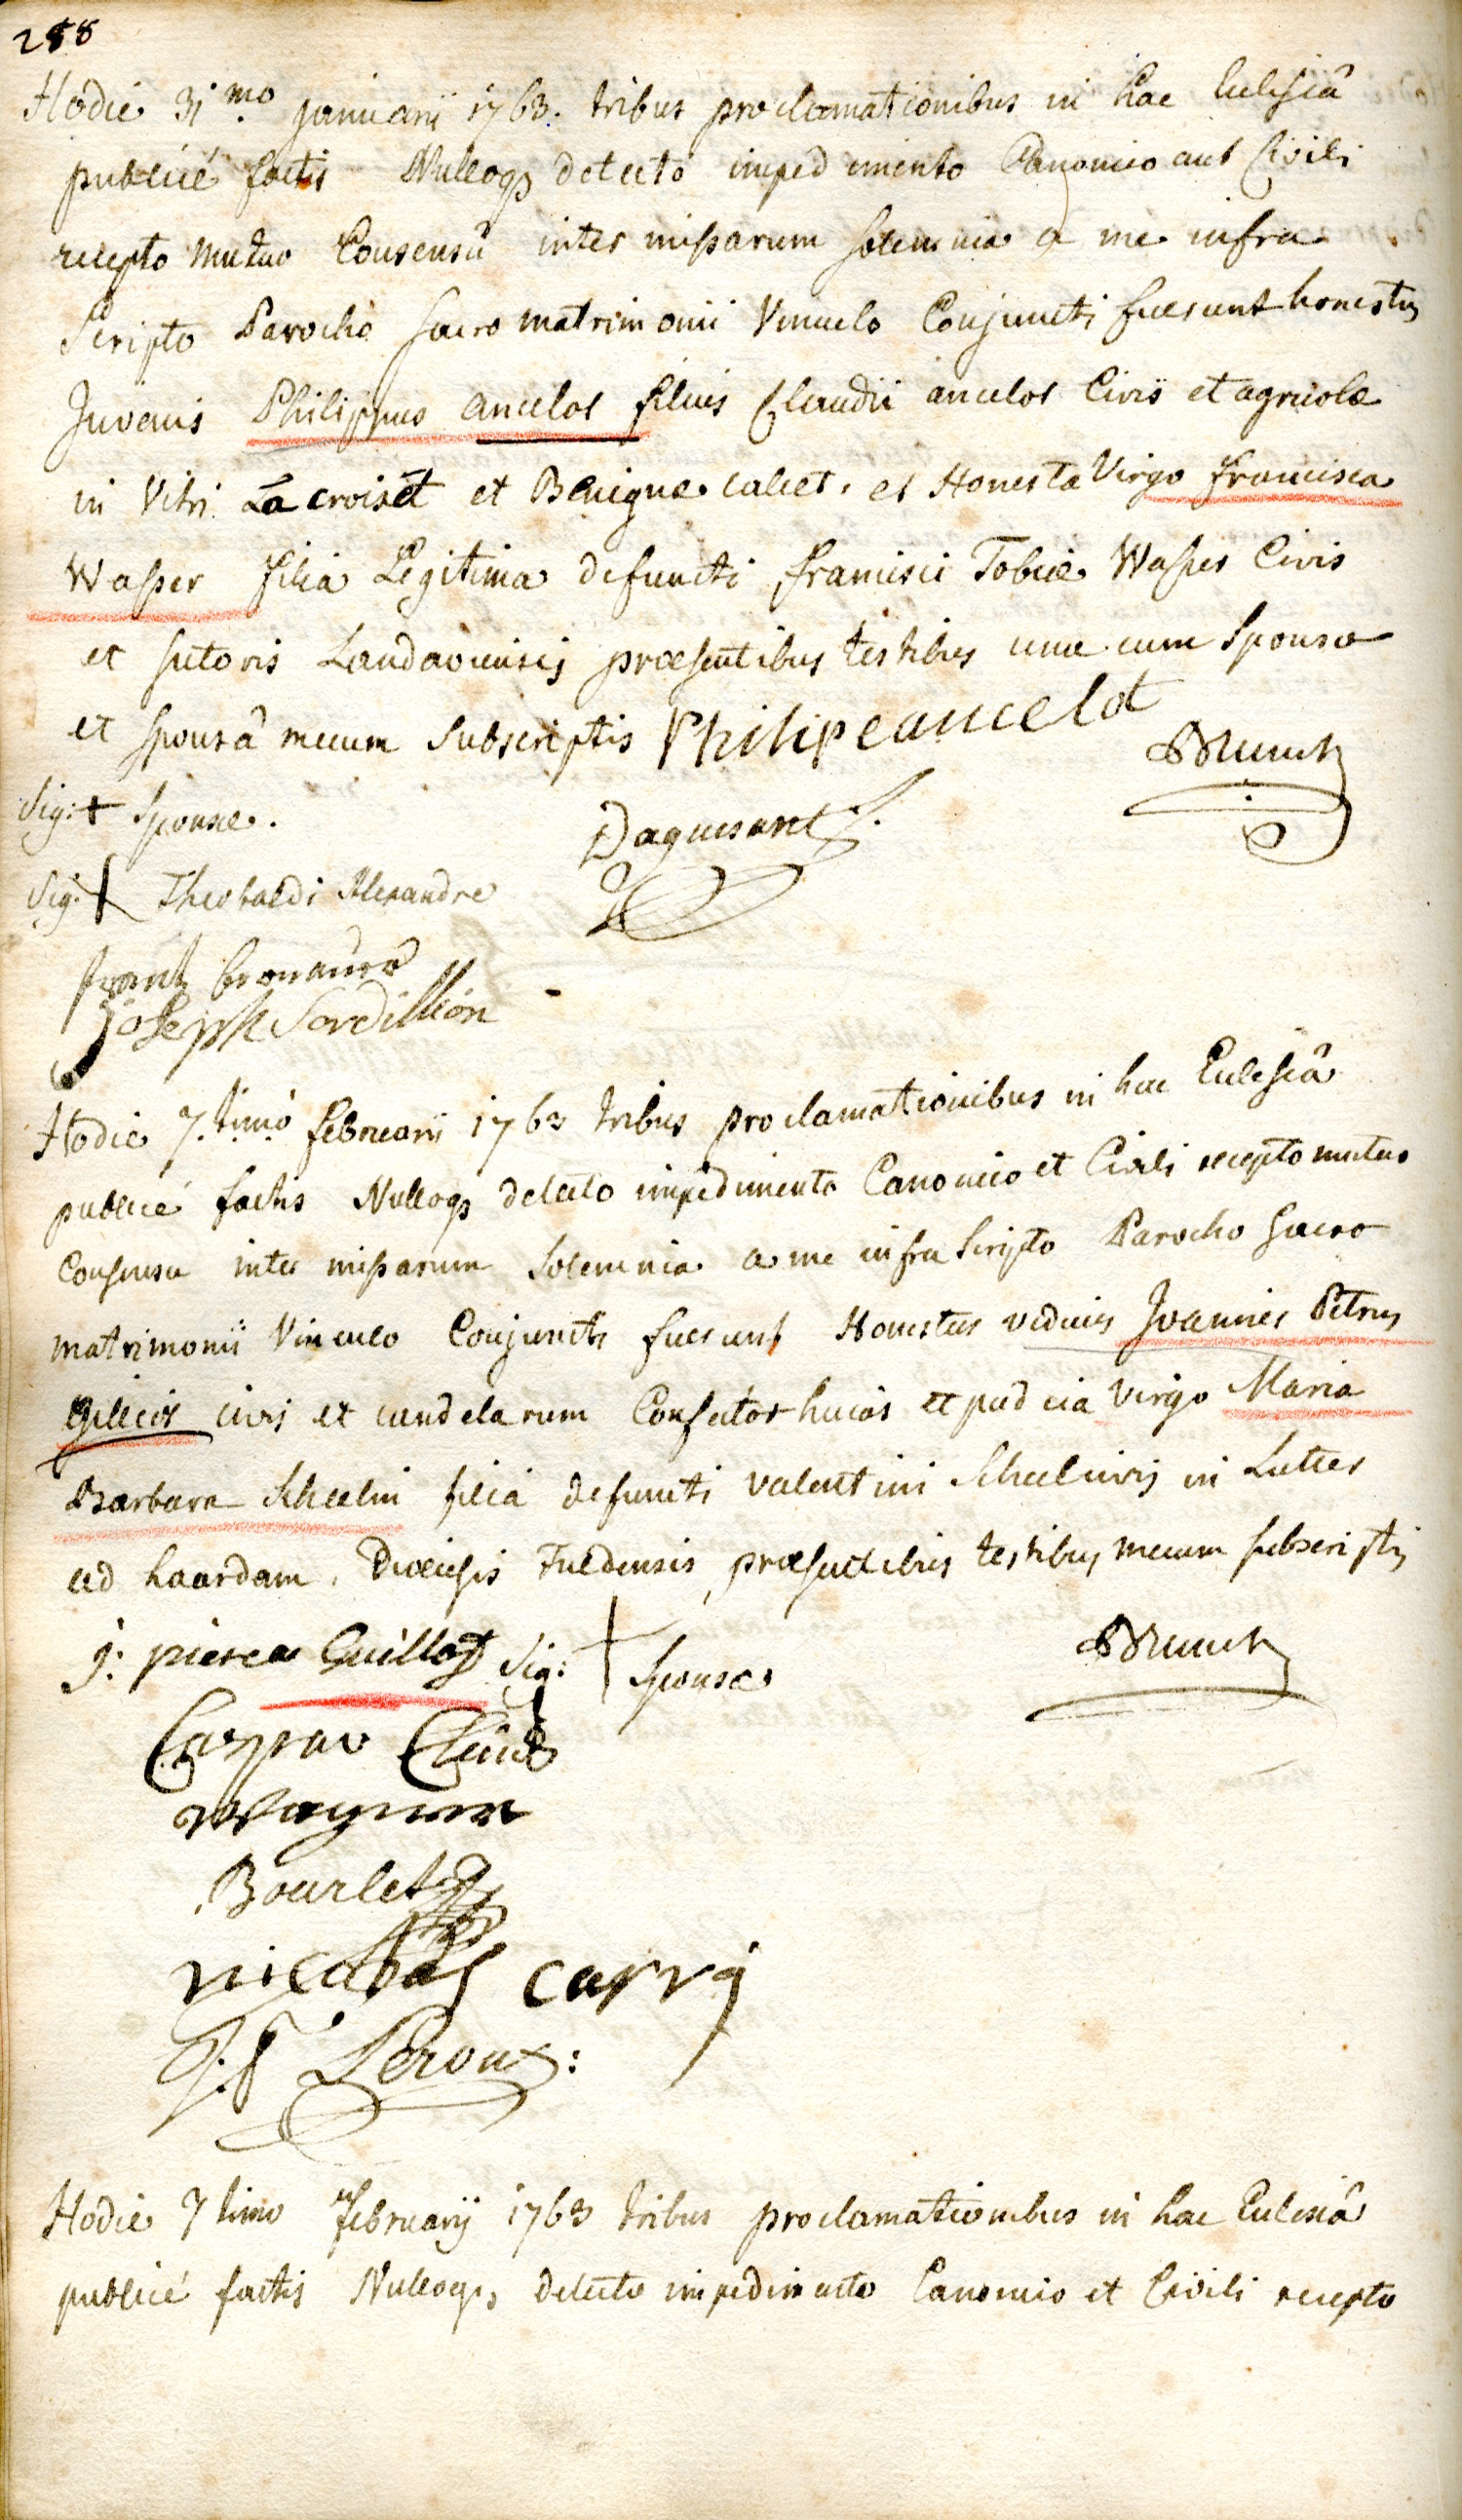 288
Hodie 31mo januarii 1763. tribus proclamationibus in hac Ecclesiâ
publicé factis Nulloqs detecto impedimento Canonico aut Civili
recepto mutuo Consensû inter missarum solemnia a me infra
Scripto Parocho sacro matrimonii Vinculo Conjuncti fuerunt honestus
Juvenis Philippus ancelot filius Claudii ancelot Civis et agricolae
in Vitri La croiset et Benignae calet. et Honesta Virgo francisca
Wasser filia Legitima defuncti francisci Tobiae Wasser Civis
et sutoris Landaviensis praesentibus testibus una cum Sponso
et sponsâ mecum Subscriptis Philipe ancelot
Sig: + Sponsae.
Daguesant
Sig: + Theobaldi Alexandre
frantz
joseph Sordillion
Hodie 7.timo februarii 1763 tribus proclamationibus in hac Ecclesiâ
publicé factis Nulloqs detecto impedimento Canonico et Civili recepto mutuo
Consensu inter missarum Solemnia a me infra Scripto Parocho Sacro
matrimonii Vinculo Conjuncti fuerunt Honestus viduus Joannes Petrus
civis et candelarum Confector huias et pudica virgo Maria
Barbara Scheelin filia defuncti valentini Scheel civis in Lutter
ad haardam, Dioecesis Fuldensis, praesentibus testibus mecum subscriptis
j: pierea Guillot Sig: + Sponsae
Caspar
Wagner
Bourlet
nicolas carrÿ
J. P Leroux:
Hodie 7timo februarÿ 1763 tribus proclamationibus in hac Ecclesiâ
publicé factis Nulloqs, detecto impedimento Canonico et Civili recepto